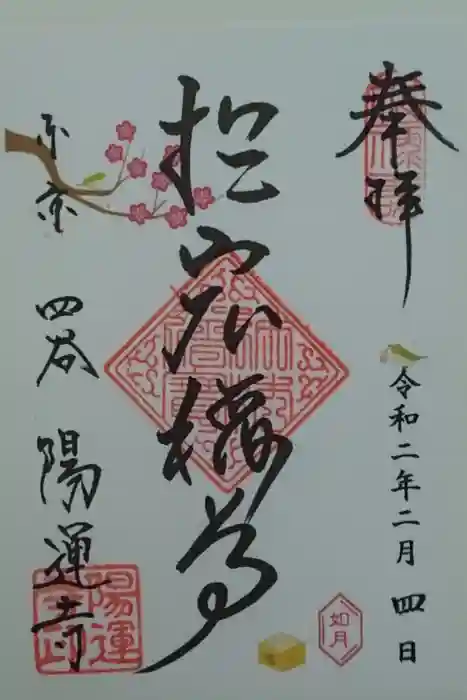 奉拝
令和二年二月四日
於岩稲荷
東京 四谷 陽運寺
如月
陽運寺印